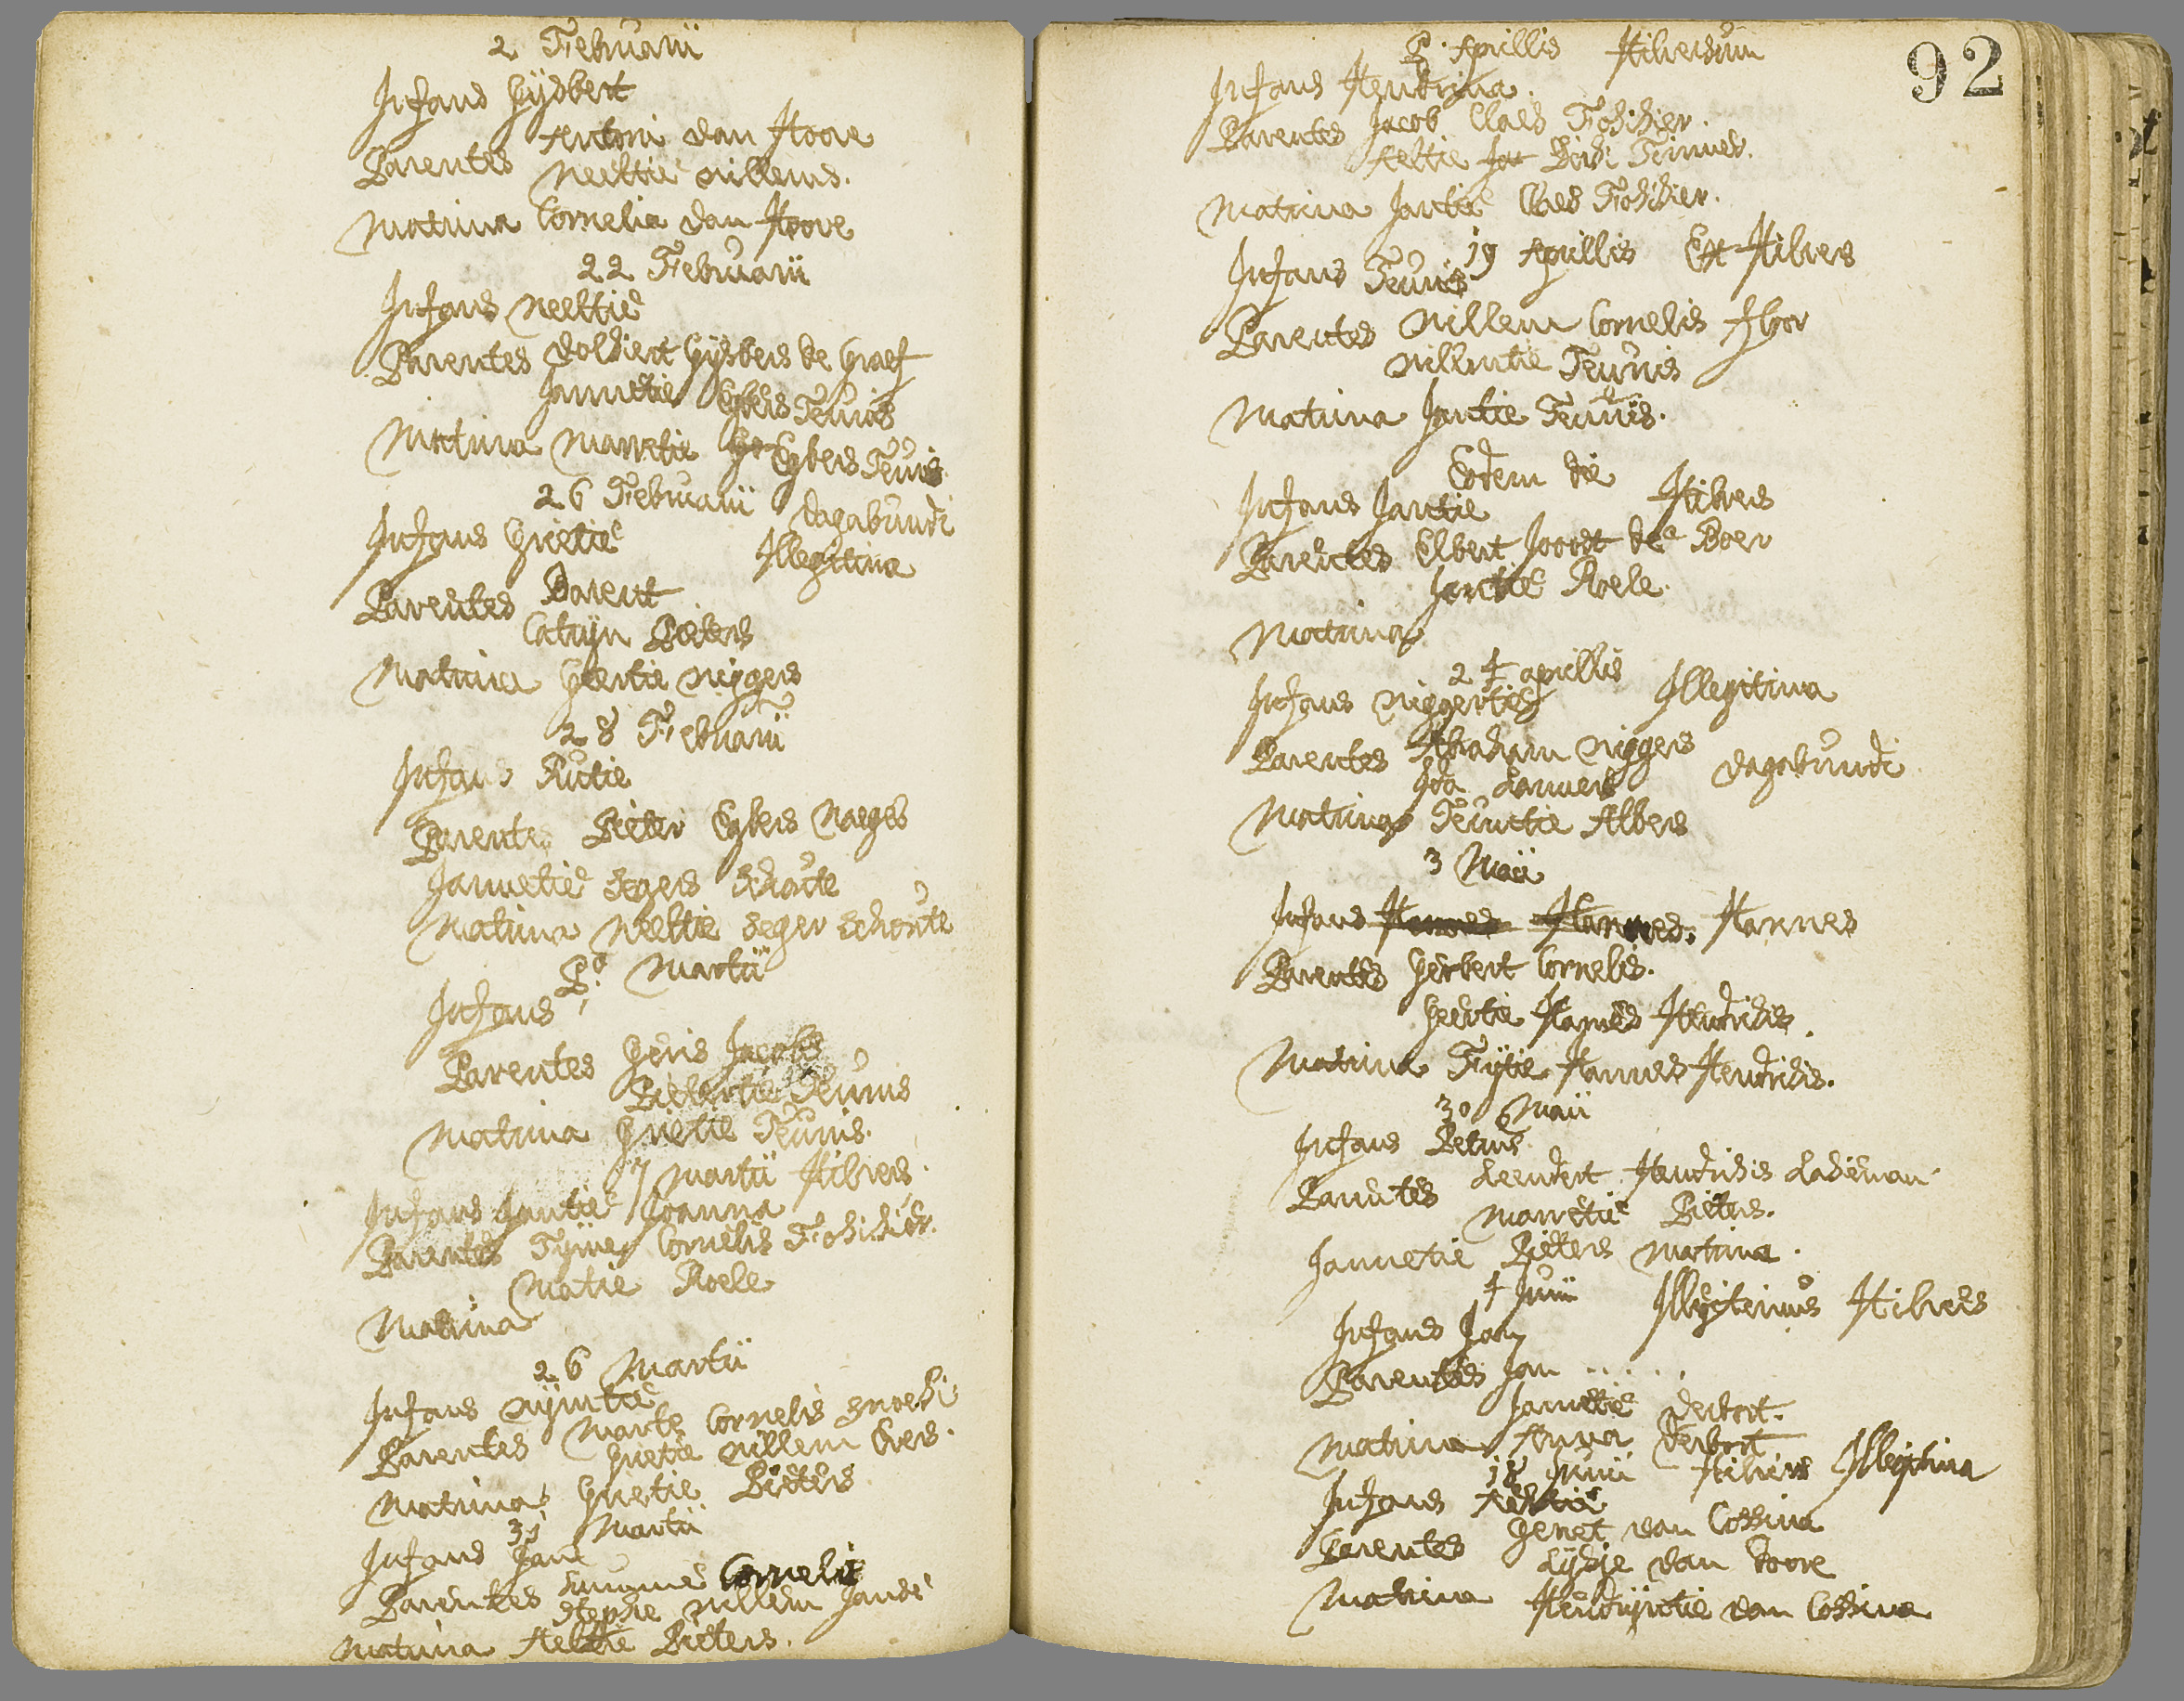 2 Februarii
Infans Gijsbert
Antoni van Hoove
Parentes Neeltie Willems.
Matrina Cornelia van Hoove
22 Februarii
Infans Neeltie
Parentes Volkiert Gijsbers de Graef
Jannetie Egbers Teunis
Matrina Marretie Egbers Teunis
26 Februarii vagabundi
Infans Grietie Illegitima
Parentes Barent
Catrijn Pieters
Matrina Geertie Wiggers
28 Februarii
Infans Rutie
Parentes Pieter Egbers Naeges
Jannetie Segers Schoute
Matrina Neeltie Seger Schoute
P.º Martii
Infans
Parentes Geris Jacobs
Piebertie Teunis
Matrina Grietie Teunis.
7 Martii Hilvers.
Infans Jantie Joanna
Parentes Tijmen Cornelis Fokkier.
Matie Roele
Matrina
26 Martii
Infans Wijntie
Parentes Marte Cornelis Snoek
Grietie Willem Evers.
Matrina Grietie Pieters
31 Martii
Infans Jant
Parentes Cornelis
Stephe Willem Jande
Matrina Aeltie Pieters.
92
P. Aprillis Hilversum
Infans Hendrina.
Parentes Jacob Claes Fokkier.
Aeltie Tinnes.
Matrina Jantie Claes Fokkier.
19 Aprillis Ex Hilvers
Infans Teunis
Parentes Willem Cornelis Floor
Willmtie Teunis
Matrina Jantie Teunis.
Eodem die
Infans Jantie Hilvers
Parentes Elbert Joost de Boer
Jantie Roele.
Matrina
24 aprillis
Infans Wiggertie Illegitima
Parentes Abraham Wiggers vagabundi
Ida Lamers
Matrina Teuntie Albers
3 Maii
Infans Hannes Hannes. Hannes
Parentes Gerbert Cornelis.
Geertie Hannes Hendriks.
Matrina Fijtie Hannes Hendriks.
30 Maii
Infans Petrus.
Parentes Leendert Hendriks Lakeman
Marretie Pieters.
Jannetie Pieters Matrina.
4 Junii Illegitimus Hilvers
Infans Jan
Parentes Jan ......
Jannetie Verbort.
Matrina Anna Verbort
18 Junii Hilvers Illegitima
Infans Aeltie
Parentes Gerret van Cossina
Lijsje van Hoove
Matrina Hendrijntie van Cossina